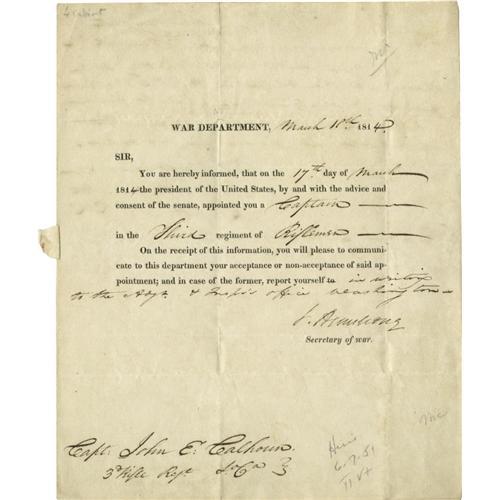 WAR DEPARTMENT, March 18th 1814.
SIR,
You are hereby informed, that on the 17th day of March
1814 the president of the United States, by and with the advice and
consent of the senate, appointed you a Captain
in the Third regiment of Riflemen
On the receipt of this information, you will please to communi-
cate to this department your acceptance or non-acceptance of said
appointment; and in case of the former, report yourself to in writing
to the Adjt. & Insp's office Washington
J. Armstrong
Secretary of war.
Capt. John E. Calhoun
3d Rifle Regt So Ca
6.7.51